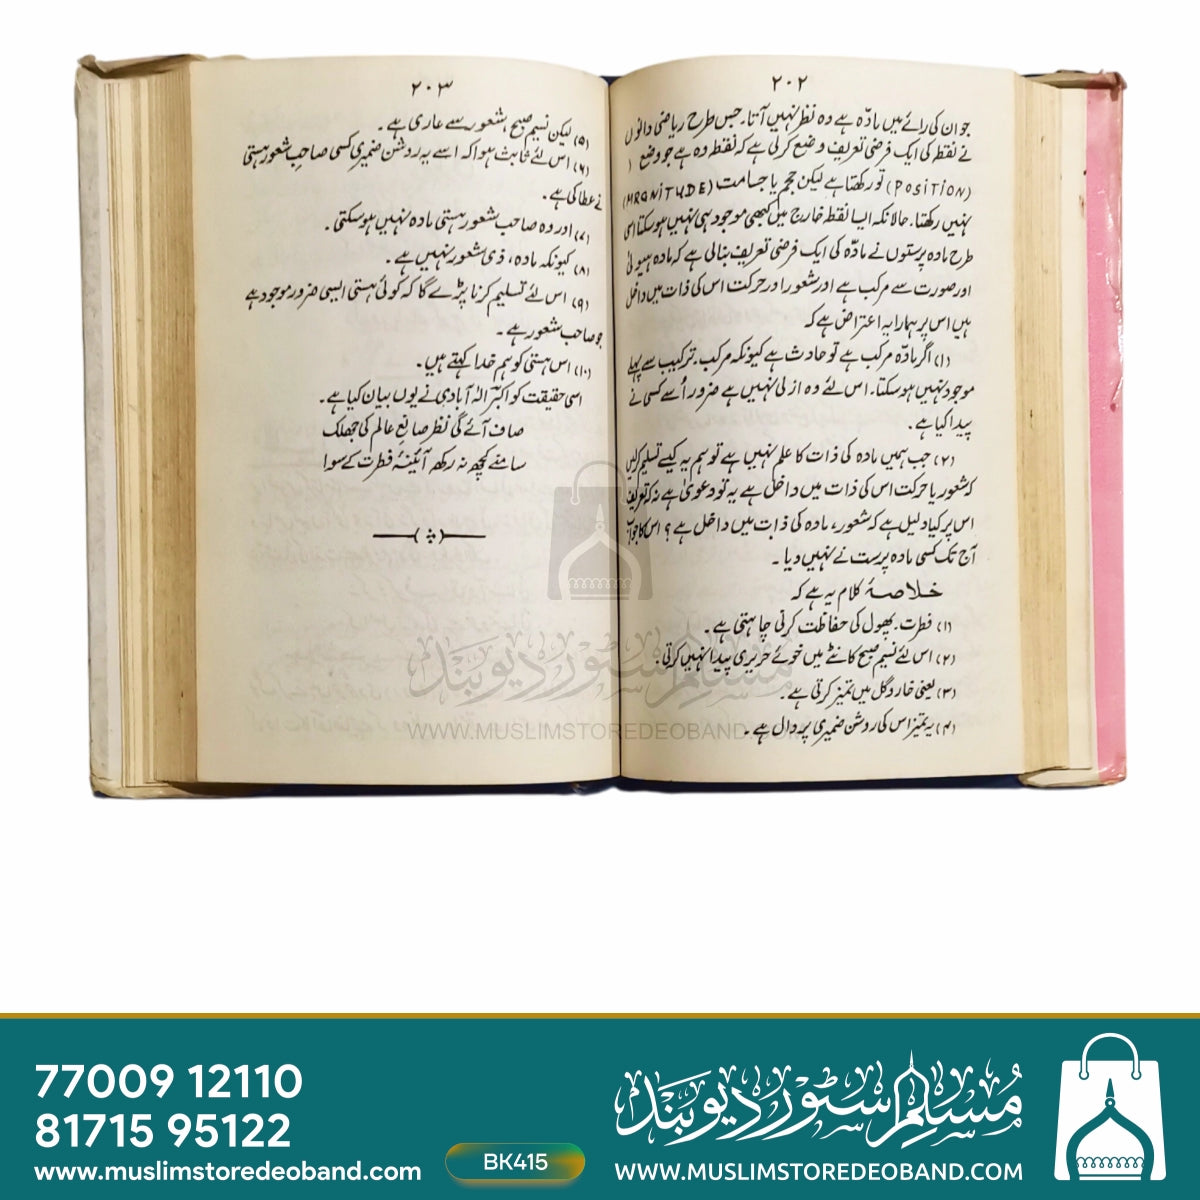 ۲۰۲
جو ان کی رائے میں مادّہ ہے وہ نظر نہیں آتا۔ جس طرح ریاضی دانوں
نے نقطہ کی ایک فرضی تعریف وضع کرلی ہے کہ نقطہ وہ ہے جو وضع
(POSITION) تو رکھتا ہے لیکن حجم یا جسامت (MAGNITUDE)
نہیں رکھتا۔ حالانکہ ایسا نقطہ خارج میں کبھی موجود ہی نہیں ہوسکتا اسی
طرح مادہ پرستوں نے مادّہ کی ایک فرضی تعریف بنالی ہے کہ مادہ ہیولیٰ
اور صورت سے مرکب ہے اور شعور اور حرکت اس کی ذات میں داخل
ہیں اس پر ہمارا یہ اعتراض ہے کہ
(۱) اگر مادّہ مرکب ہے تو حادث ہے کیونکہ مرکب، ترکیب سے پہلے
موجود نہیں ہوسکتا۔ اس لئے وہ ازلی نہیں ہے ضرور اُسے کسی نے
پیدا کیا ہے۔
(۲) جب ہمیں مادہ کی ذات کا علم نہیں ہے تو ہم یہ کیسے تسلیم کرلیں
کہ شعور یا حرکت اس کی ذات میں داخل ہے یہ تو دعویٰ ہے نہ کہ تعریف
اس پر کیا دلیل ہے کہ شعور، مادہ کی ذات میں داخل ہے؟ اس کا جواب
آج تک کسی مادہ پرست نے نہیں دیا۔
خلاصۂ کلام یہ ہے کہ
(۱) فطرت، پھول کی حفاظت کرتی چاہتی ہے۔
(۲) اس لئے نسیم صبح کانٹے میں خوئے حریری پیدا نہیں کرتی۔
(۳) یعنی خار و گل میں تمیز کرتی ہے۔
(۴) یہ تمیز اس کی روشن ضمیری پر دال ہے۔
۲۰۳
(۵) لیکن نسیم صبح، شعور سے عاری ہے۔
(۶) اس لئے ثابت ہوا کہ اسے یہ روشن ضمیری کسی صاحبِ شعور ہستی
نے عطا کی ہے۔
(۷) اور وہ صاحب شعور ہستی مادہ نہیں ہوسکتی۔
(۸) کیونکہ مادہ، ذی شعور نہیں ہے۔
(۹) اس لئے تسلیم کرنا پڑے گا کہ کوئی ہستی ایسی ضرور موجود ہے
جو صاحب شعور ہے۔
(۱۰) اس ہستی کو ہم خدا کہتے ہیں۔
اسی حقیقت کو اکبرؔ الٰہ آبادی نے یوں بیان کیا ہے۔
صاف آئے گی نظر صانعِ عالم کی جھلک
سامنے کچھ نہ رکھ آئینۂ فطرت کے سوا
مسلم سٹور دیوبند
WWW.MUSLIMSTOREDEOBAND.COM
77009 12110
81715 95122
www.muslimstoredeoband.com
BK415
مسلم سٹور دیوبند
WWW.MUSLIMSTOREDEOBAND.COM